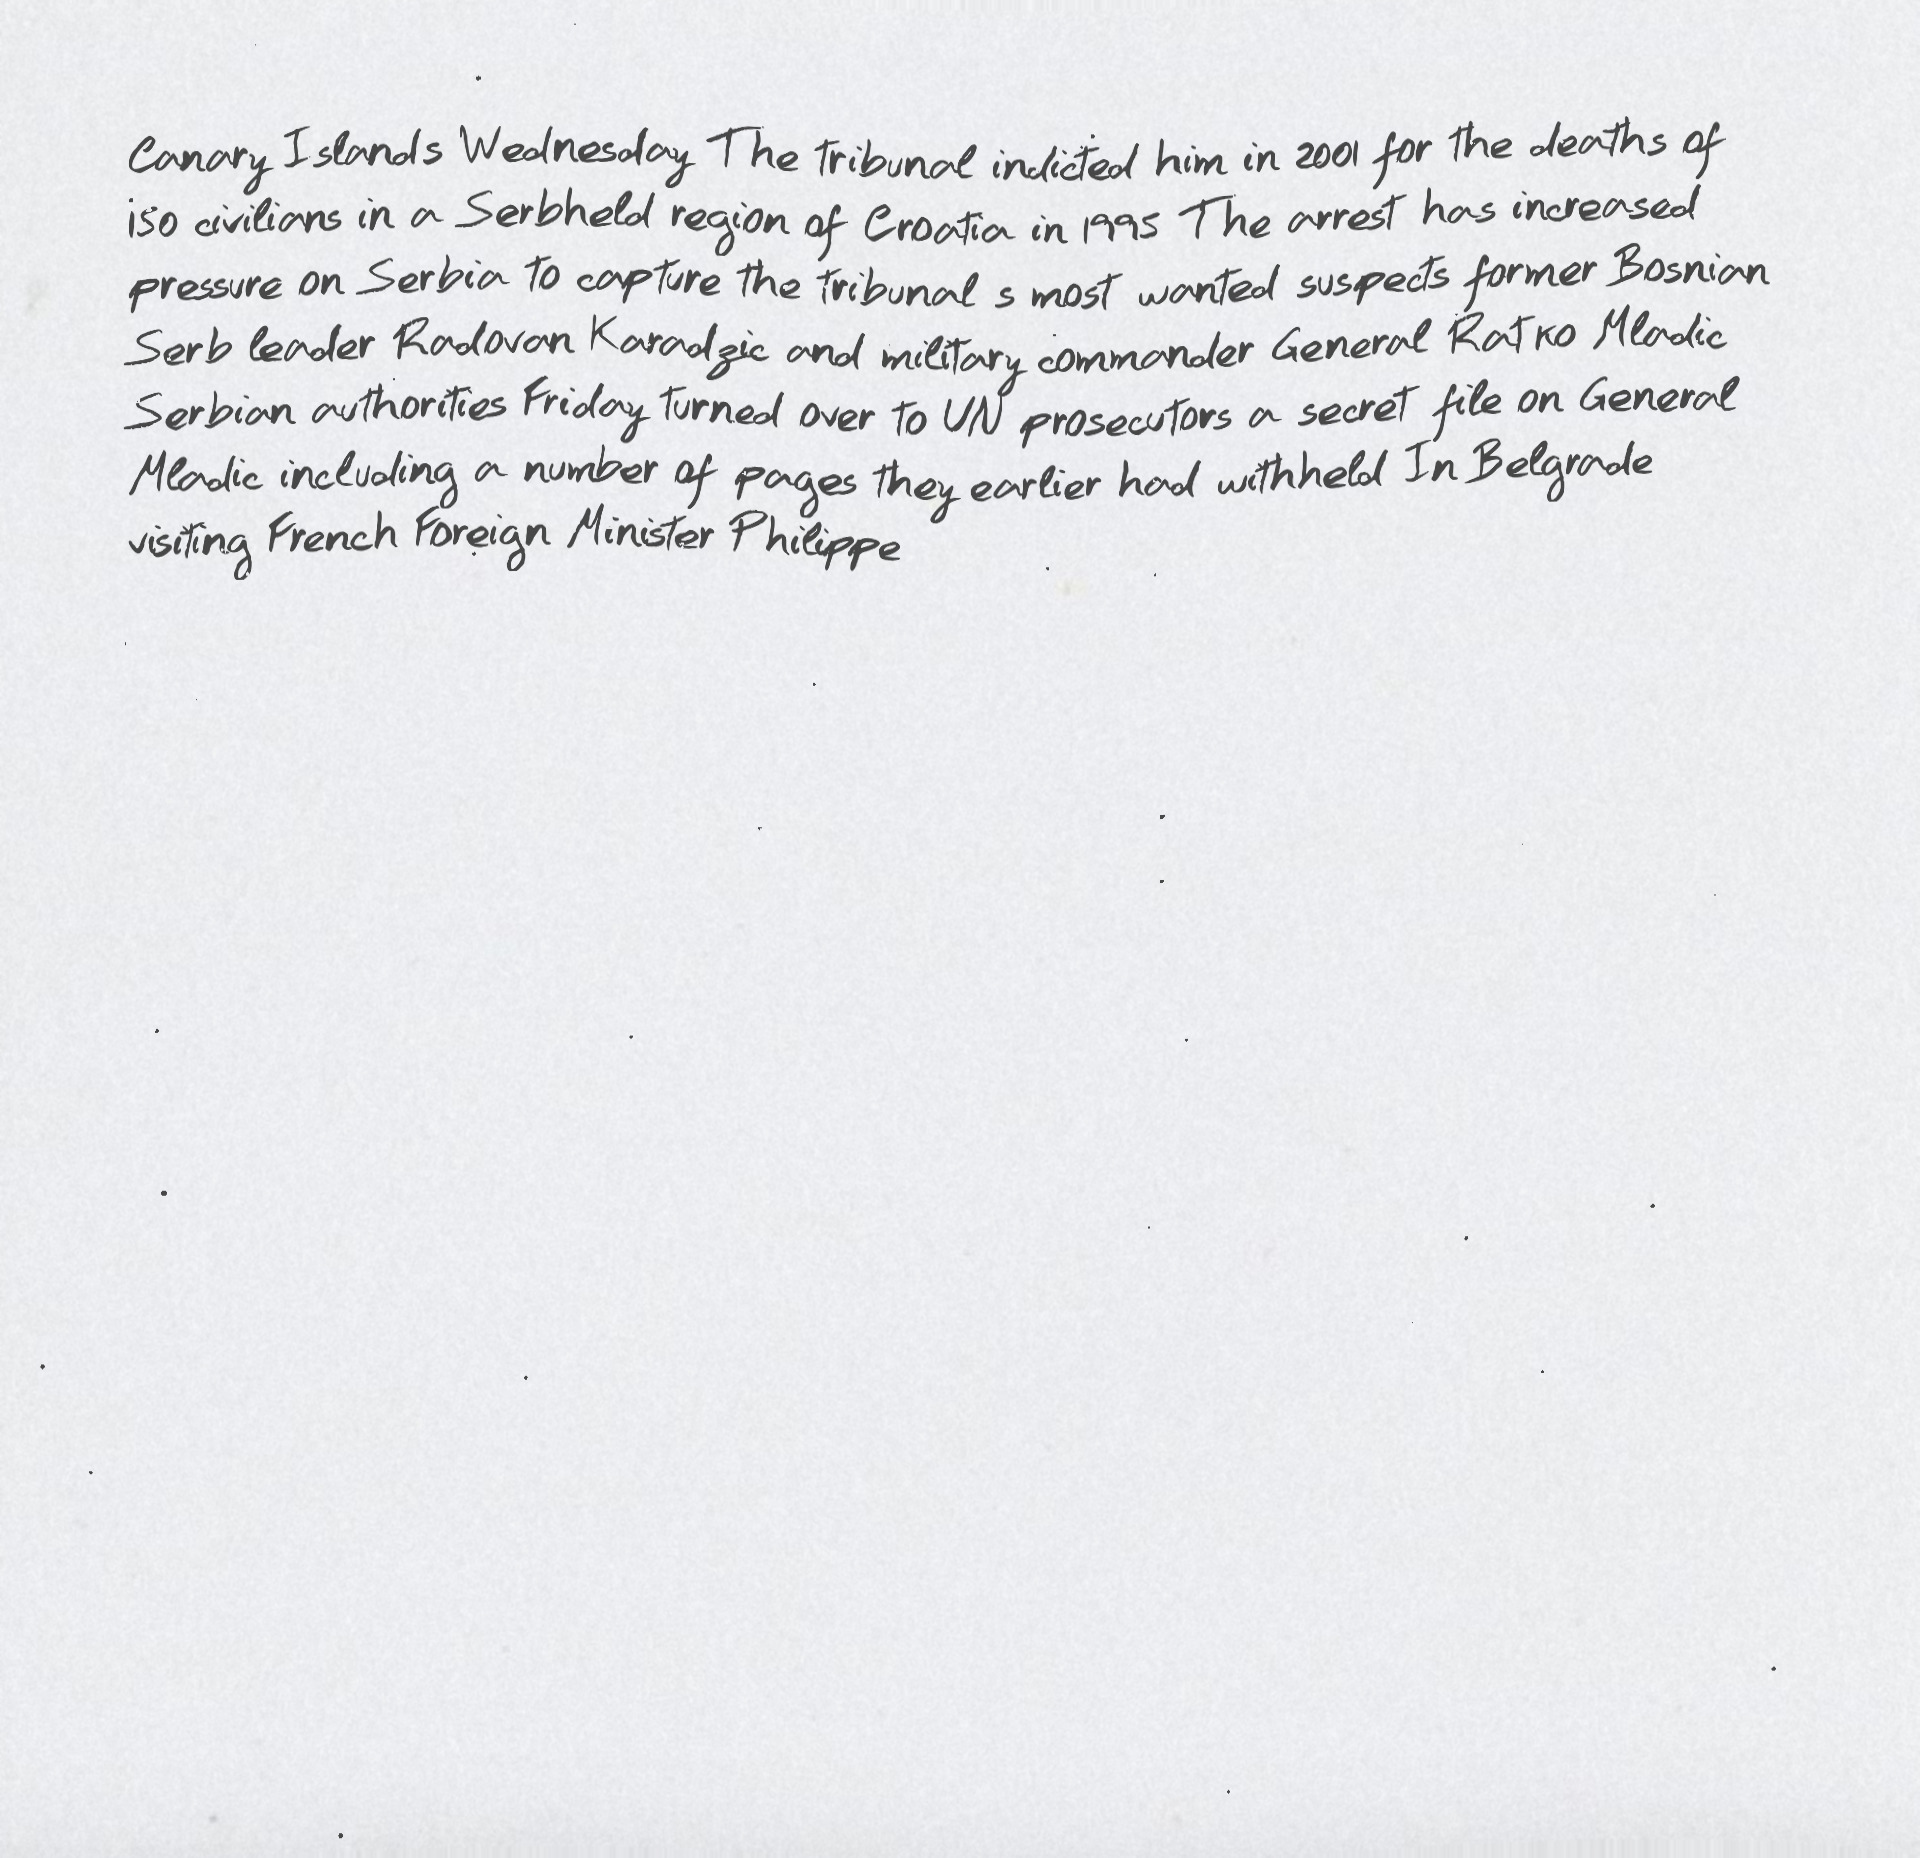 Canary Islands Wednesday The tribunal indicted him in 2001 for the deaths of
150 civilians in a Serbheld region of Croatia in 1995 The arrest has increased
pressure on Serbia to capture the tribunal s most wanted suspects former Bosnian
Serb leader Radovan Karadzic and military commander General Ratko Mladic
Serbian authorities Friday turned over to UN prosecutors a secret file on General
Mladic including a number of pages they earlier had withheld In Belgrade
visiting French Foreign Minister Philippe